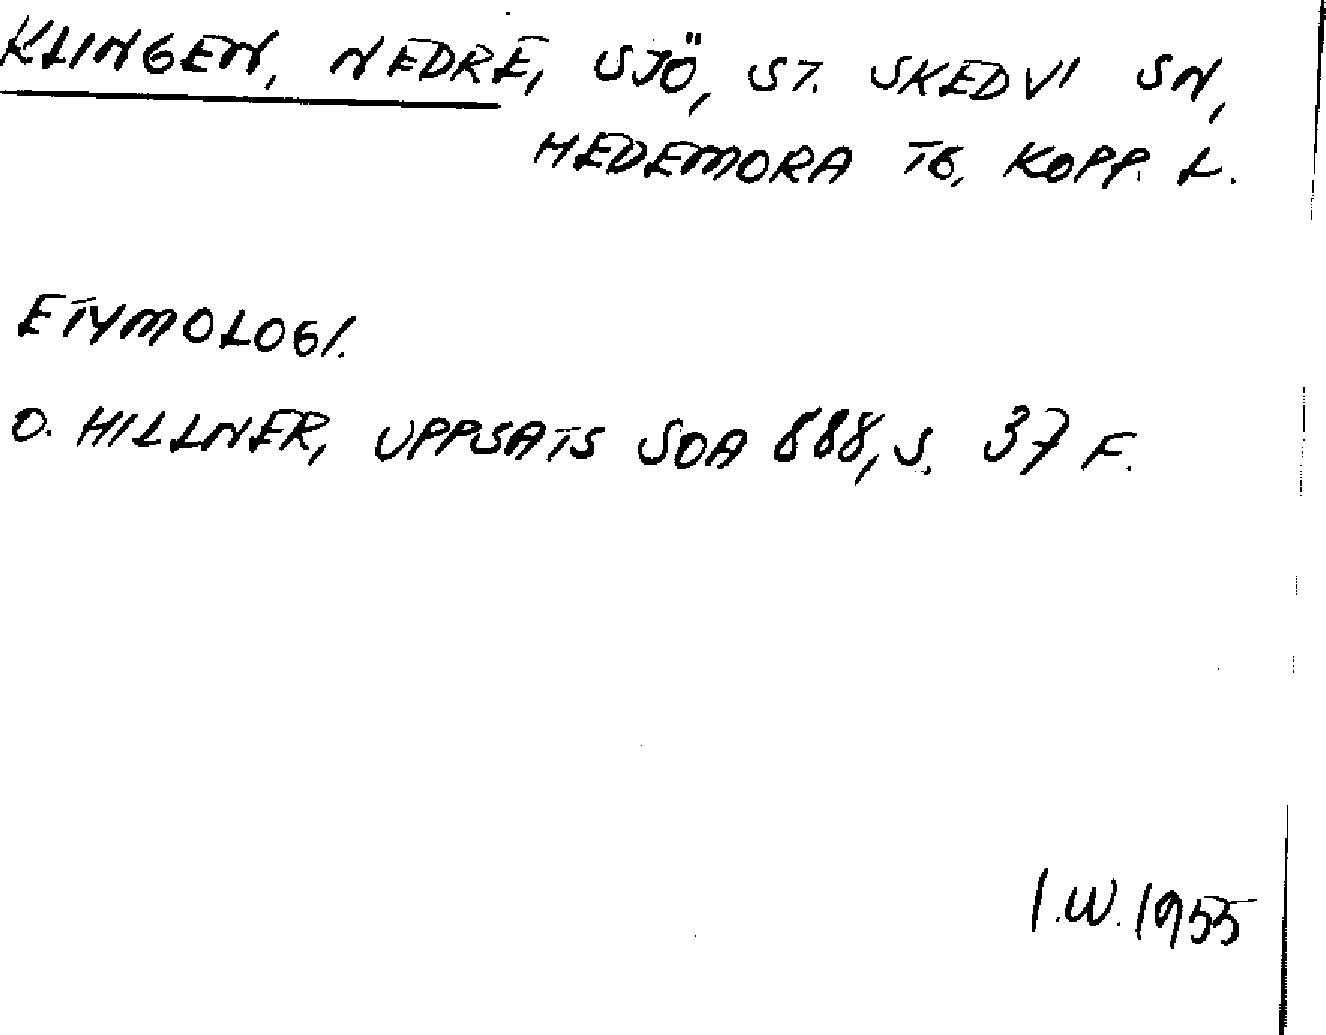 KLINGEN, NEDRE, SJÖ, ST. SKEDVI SN,
HEDEMORA TG, KOPP. L.
ETYMOLOGI.
O. HILLNER, UPPSATS SOA 888, S. 37 F.
I.W. 1955